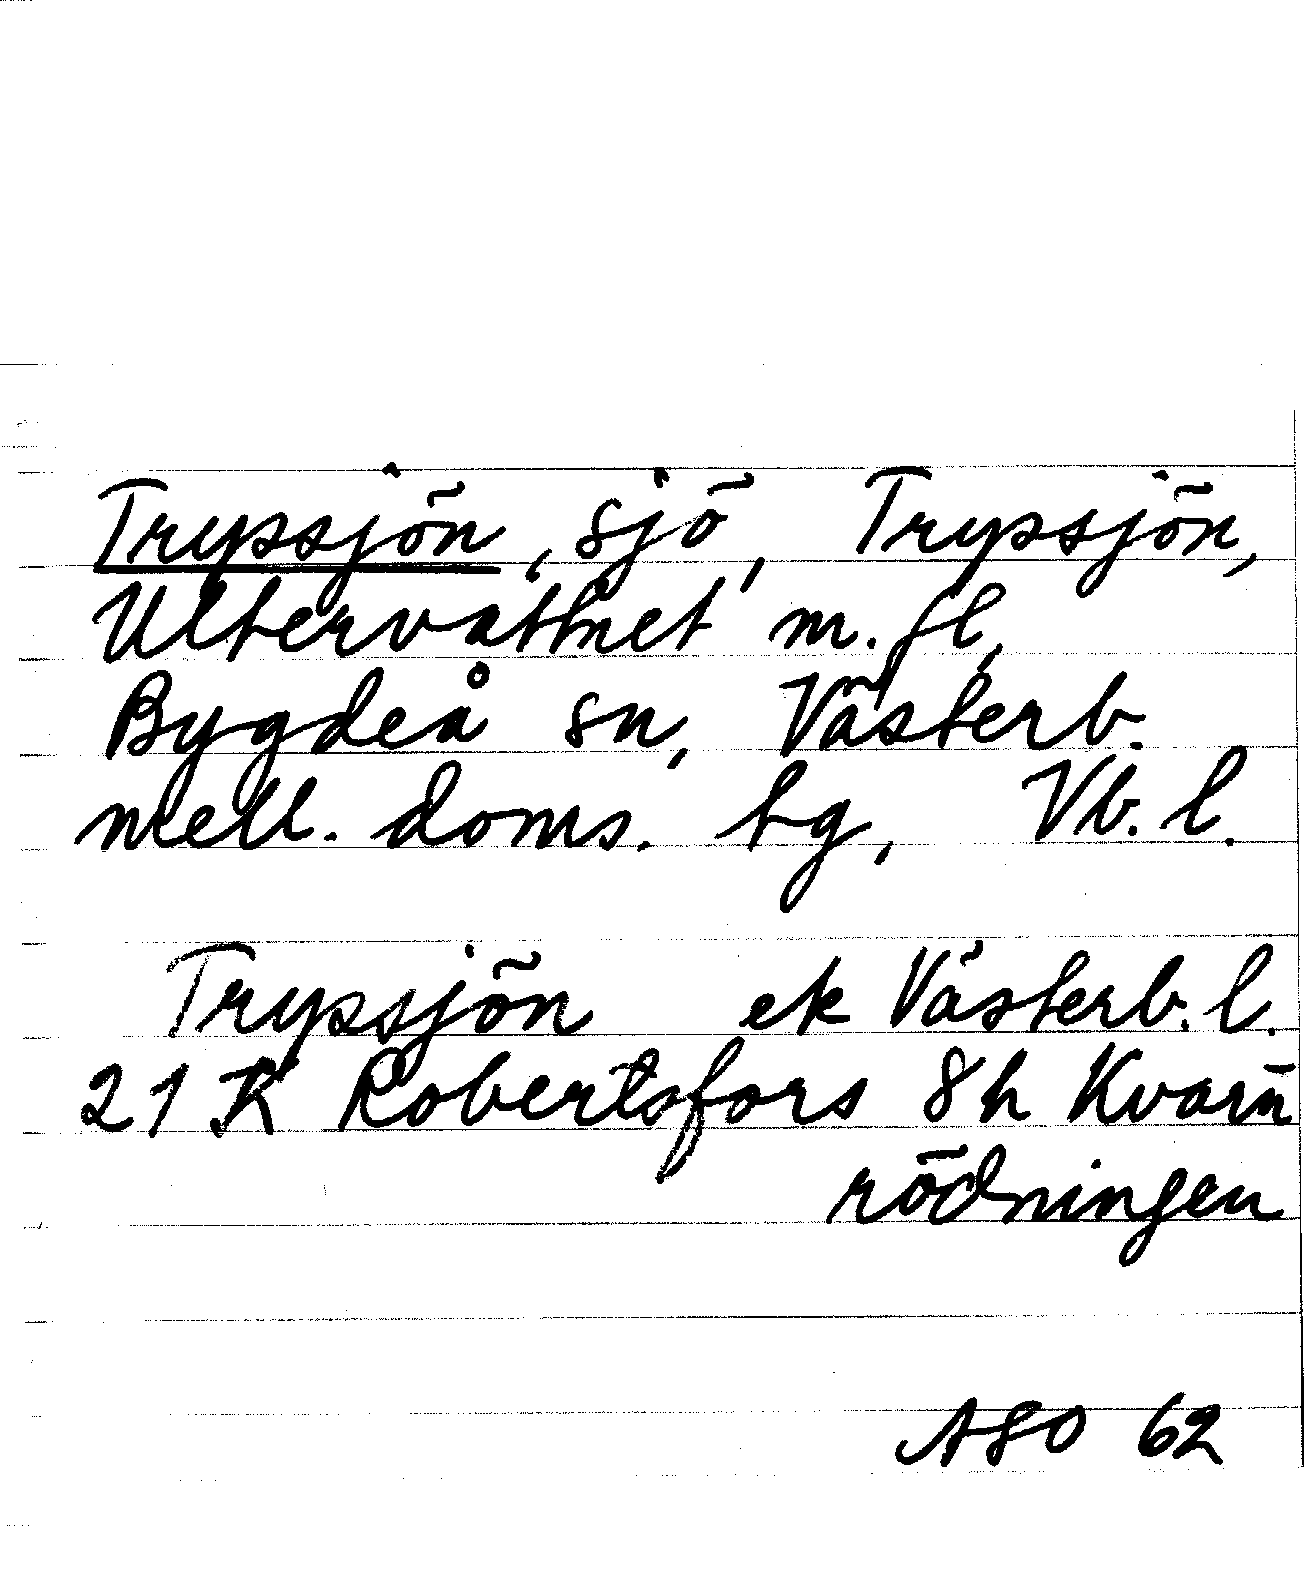 Trypsjön, sjö, Trypsjön,
Ultervattnet m. fl,
Bygdeå sn, Västerb.
mell. doms. tg, Vb. l.
Trypsjön ek Västerb. l.
21 K Robertsfors 8h Kvarn
rödningen
ASO 62